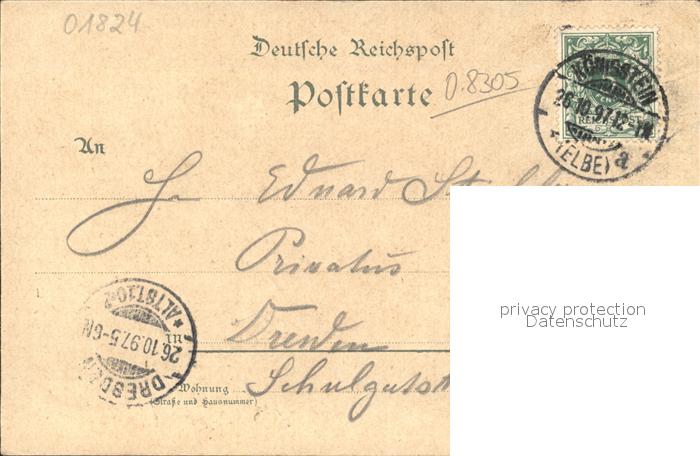 01824
Deutsche Reichspost
Postkarte 0.8305
KÖNIGSTEIN
26.10.97.12-1N.
(ELBE) a
REICHSPOST
An
H. Eduard
Privatus
in Dresden
Wohnung
(Straße und Hausnummer)
DRESDEN
26.10.97.5-6N
* ALTST.10.z
privacy protection
Datenschutz